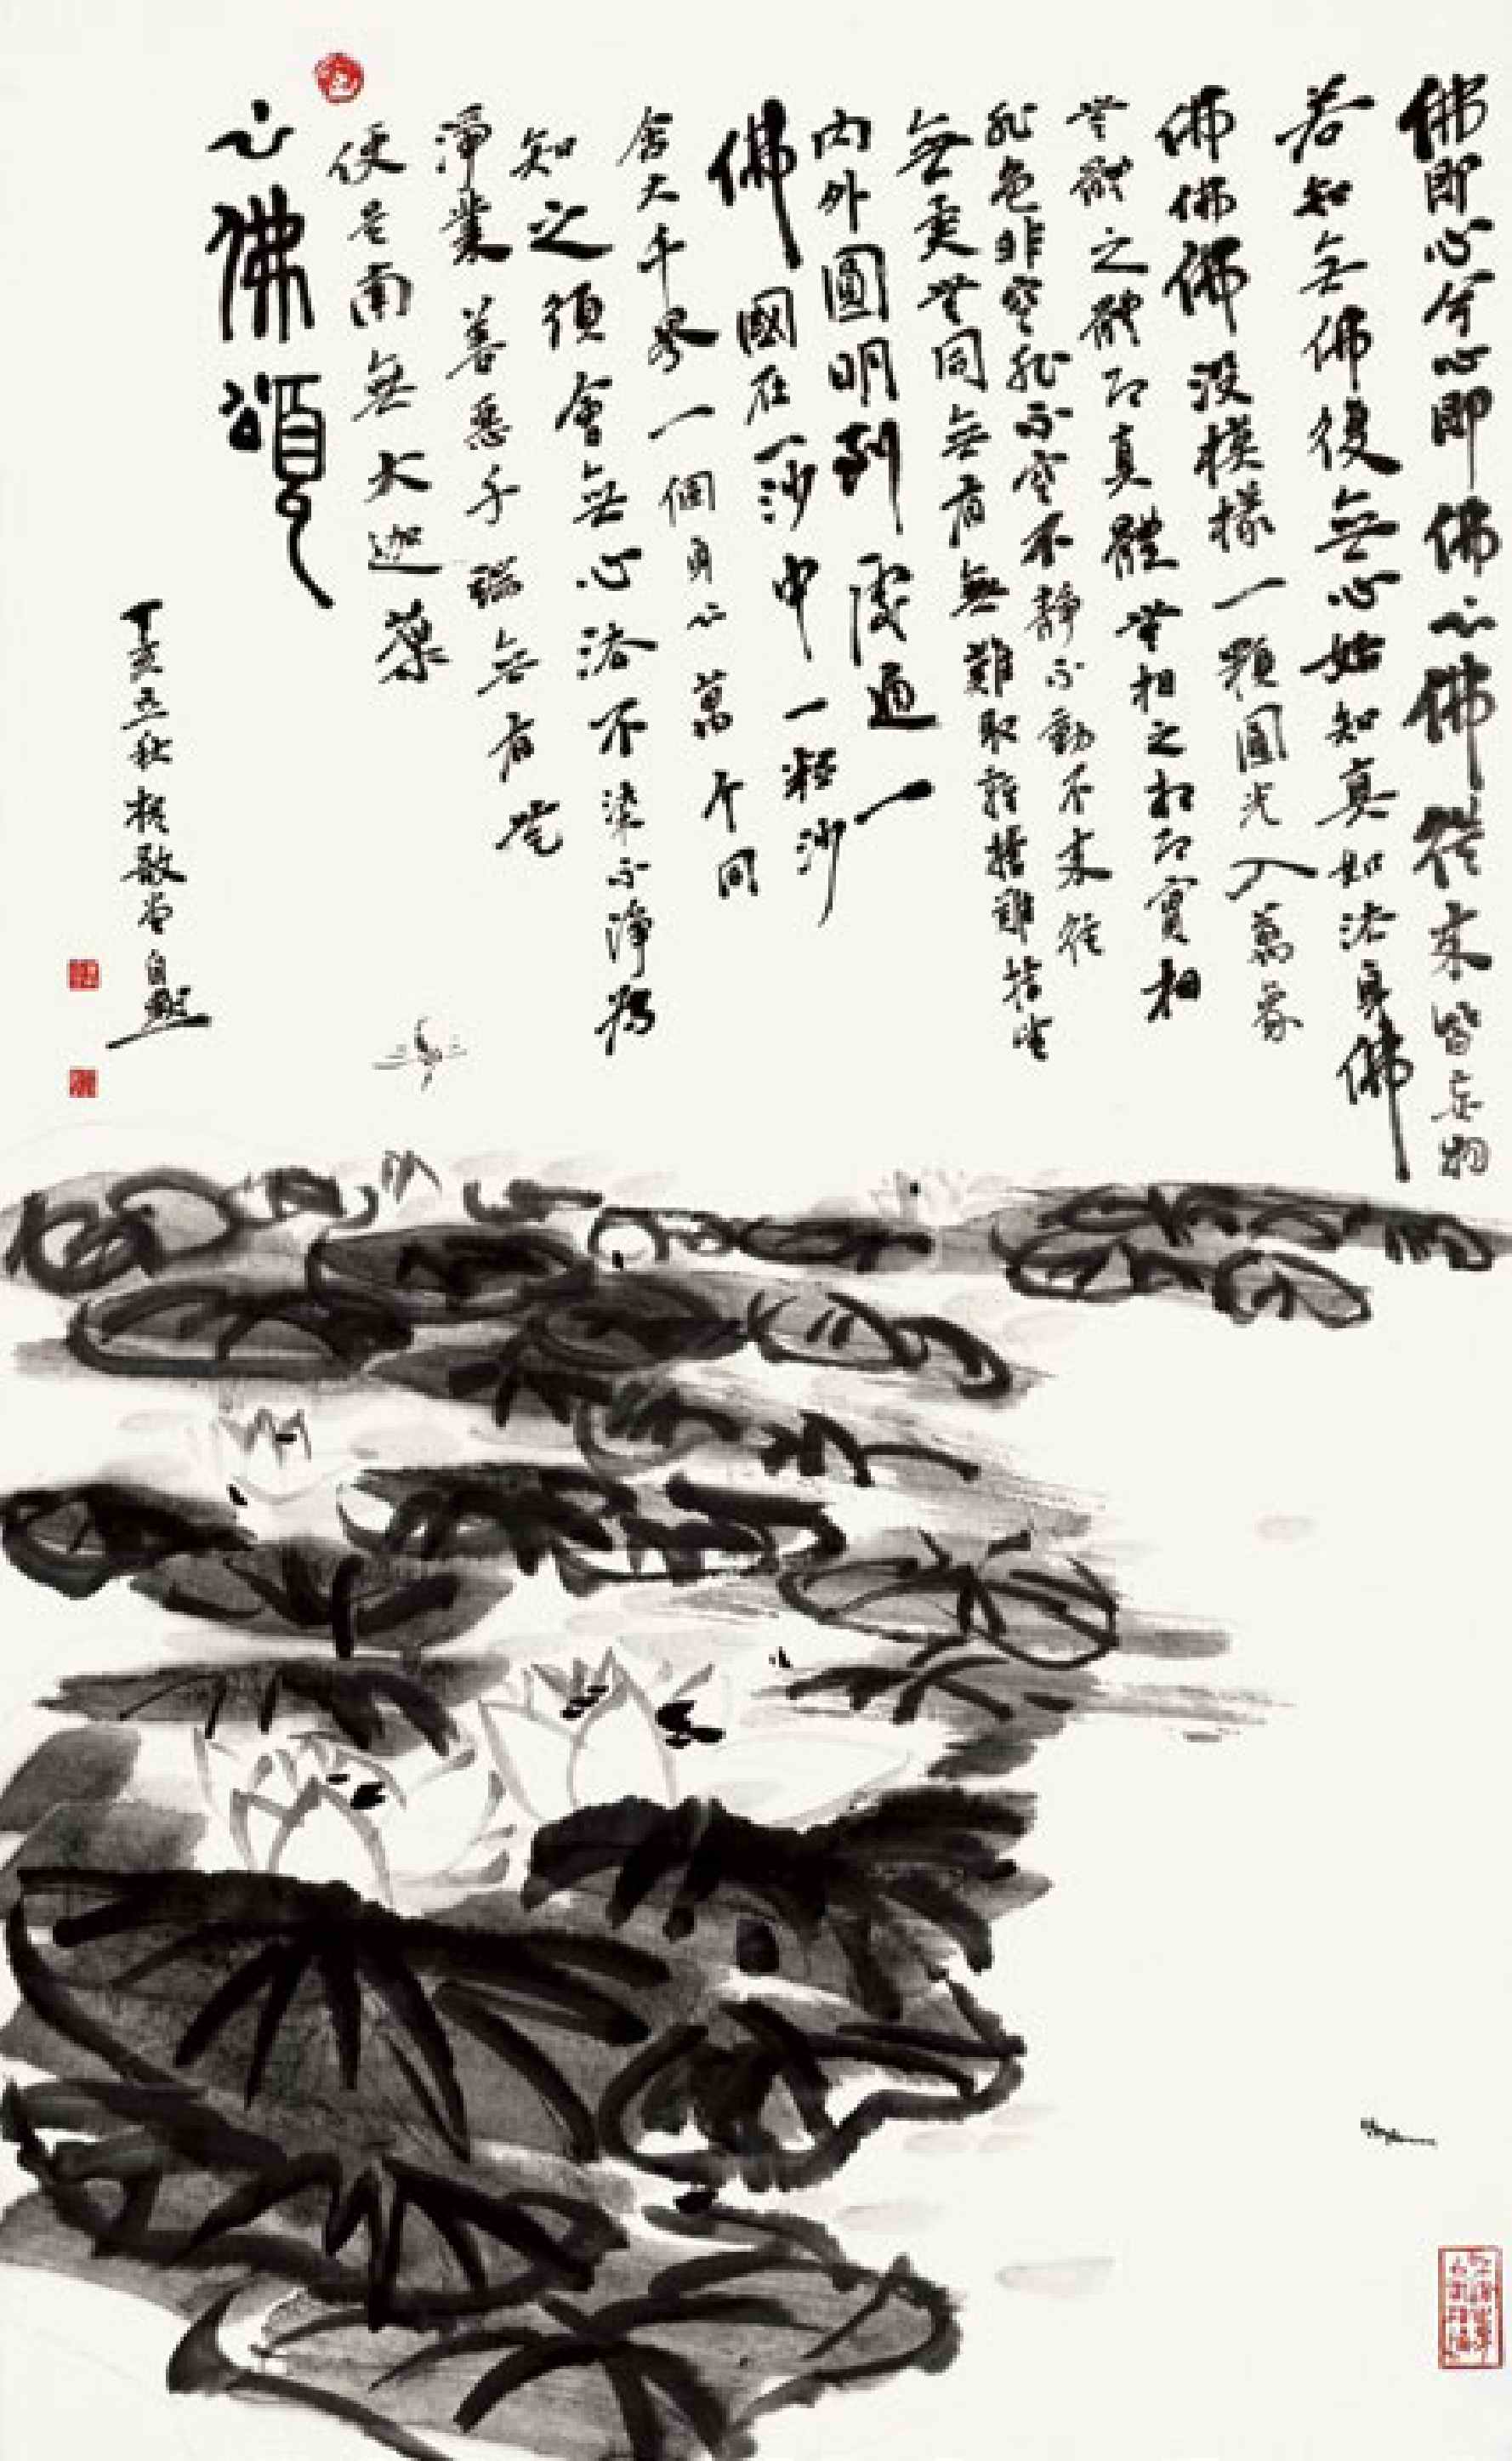 佛即心兮心即佛心佛從來皆妄物
若知無佛復無心始知真如法身佛
佛佛佛沒模樣一顆圓光入萬象
无體之體即真體无相之相即實相
非色非空非不空不靜不動不來往
無異无同無有無難取難捨難指望
內外圓明到處通一
佛國在一沙中一粒沙
含大千界一個身心萬个同
知之須會無心法不染不淨為
淨業善惡千端無有无
便是南無大迦葉
心佛頌
丁亥秋散堂自